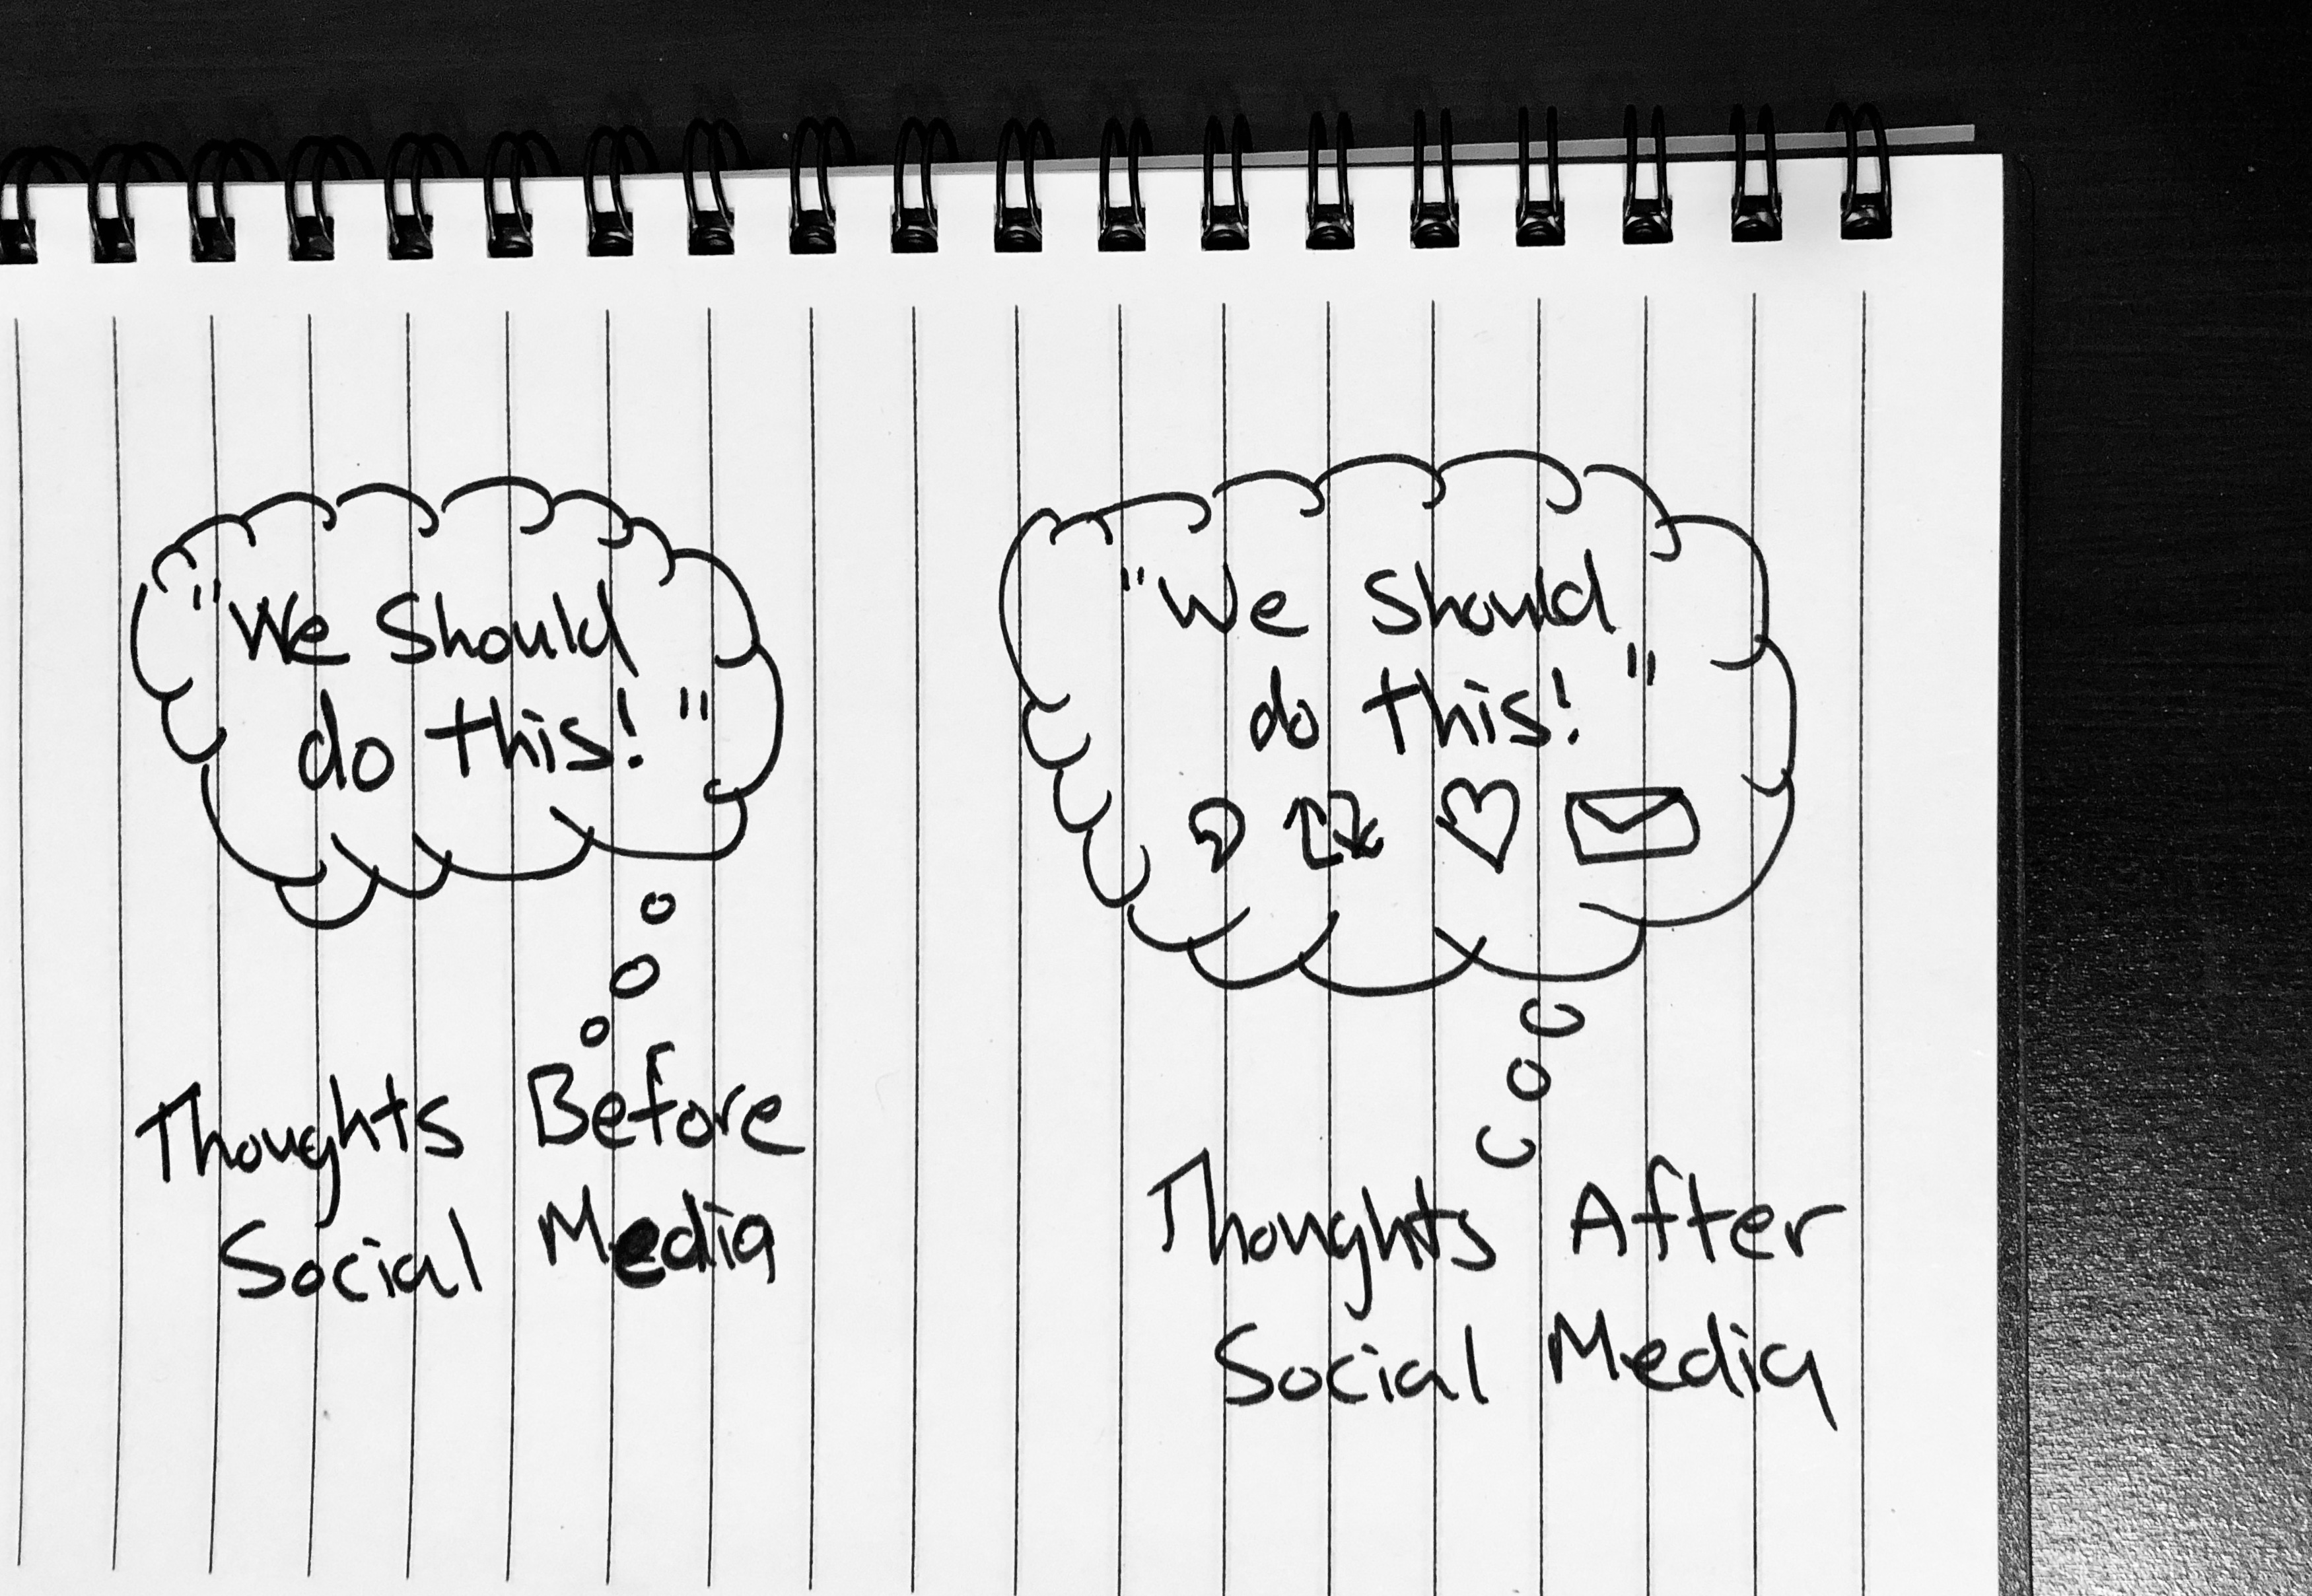 "We Should
do this!"
Thoughts Before
Social Media
"We Should
do this!"
Thoughts After
Social Media